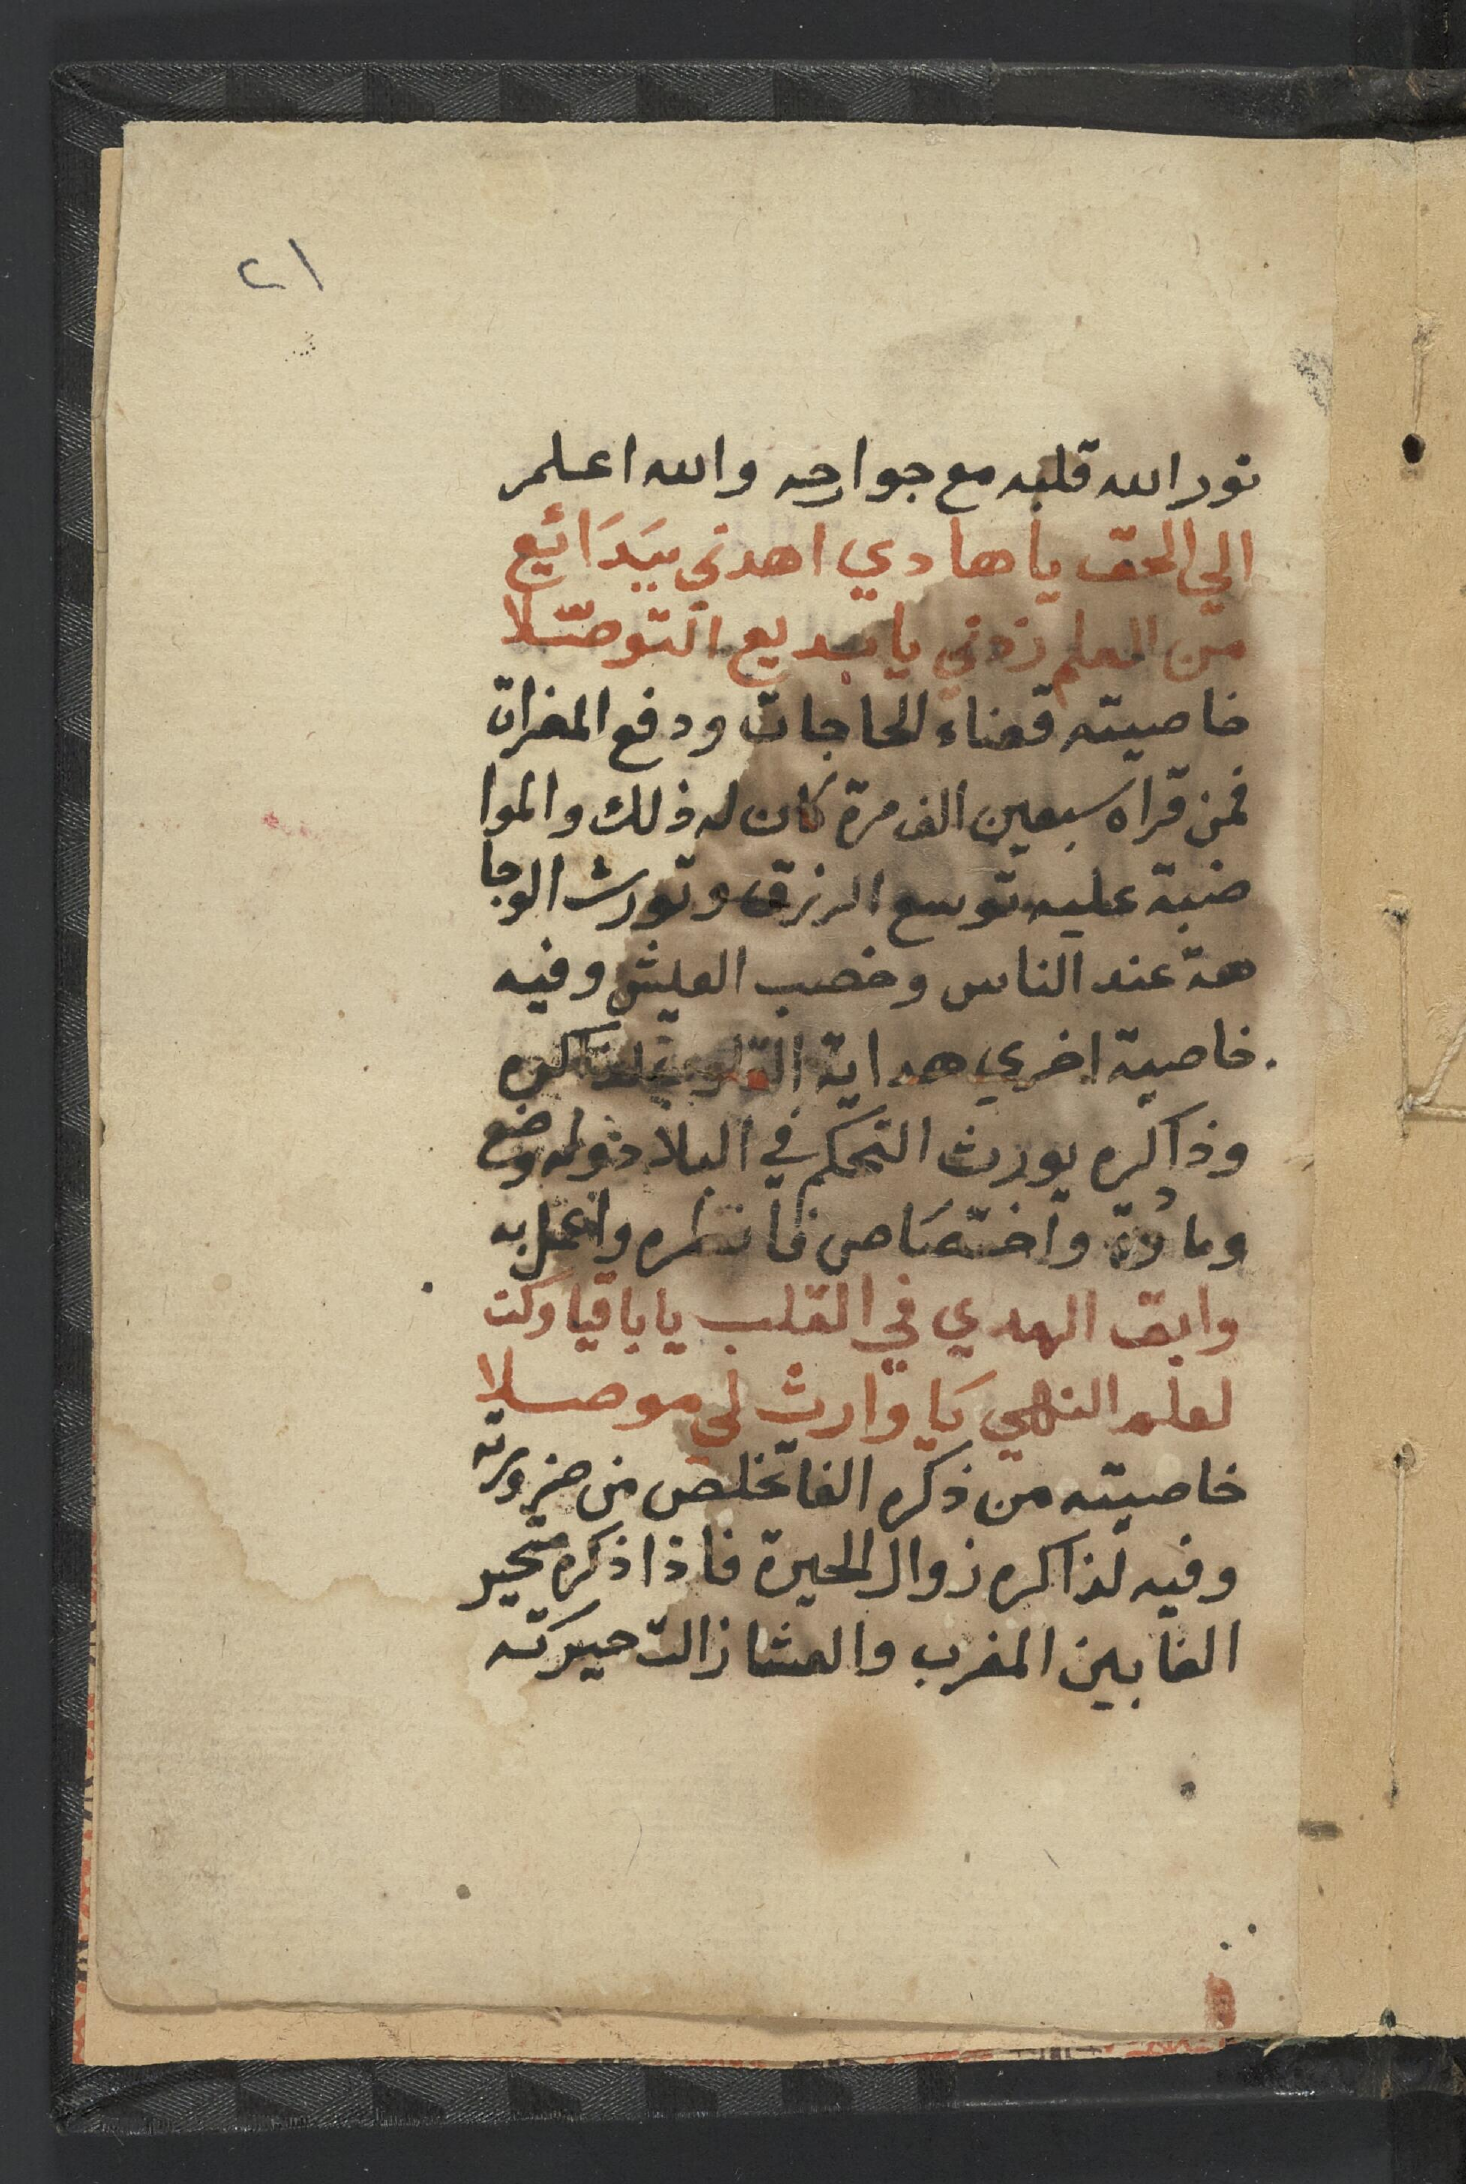 ٢١
نور الله قلبه مع جوارحه والله اعلم
الي الحق يا هادي اهدني ببَدَائِع
من العلم زدني يا بديع التوصّلا
خاصيته قضاء الحاجات ودفع المضرات
فمن قراه سبعين الف مرة كان له ذلك والموا
ضبة عليه توسع الرزق وتورث الوجا
هة عند الناس وخصب العيش وفيه
خاصية اخري هداية القلوب لذاكره
وذاكره يورث التحكم في البلاد وله وضع
واختصَاص فانظره واعمل به
وابق الهدي في القلب يا باقيا وكن
لعلم النهي يَا وارث لي موصلا
خاصيته من ذكره الفا تخلص من ضرورته
وفيه لذاكره زوال الحيرة فاذا ذكره متحير
الفا بين المغرب والعشا زالت حيرته